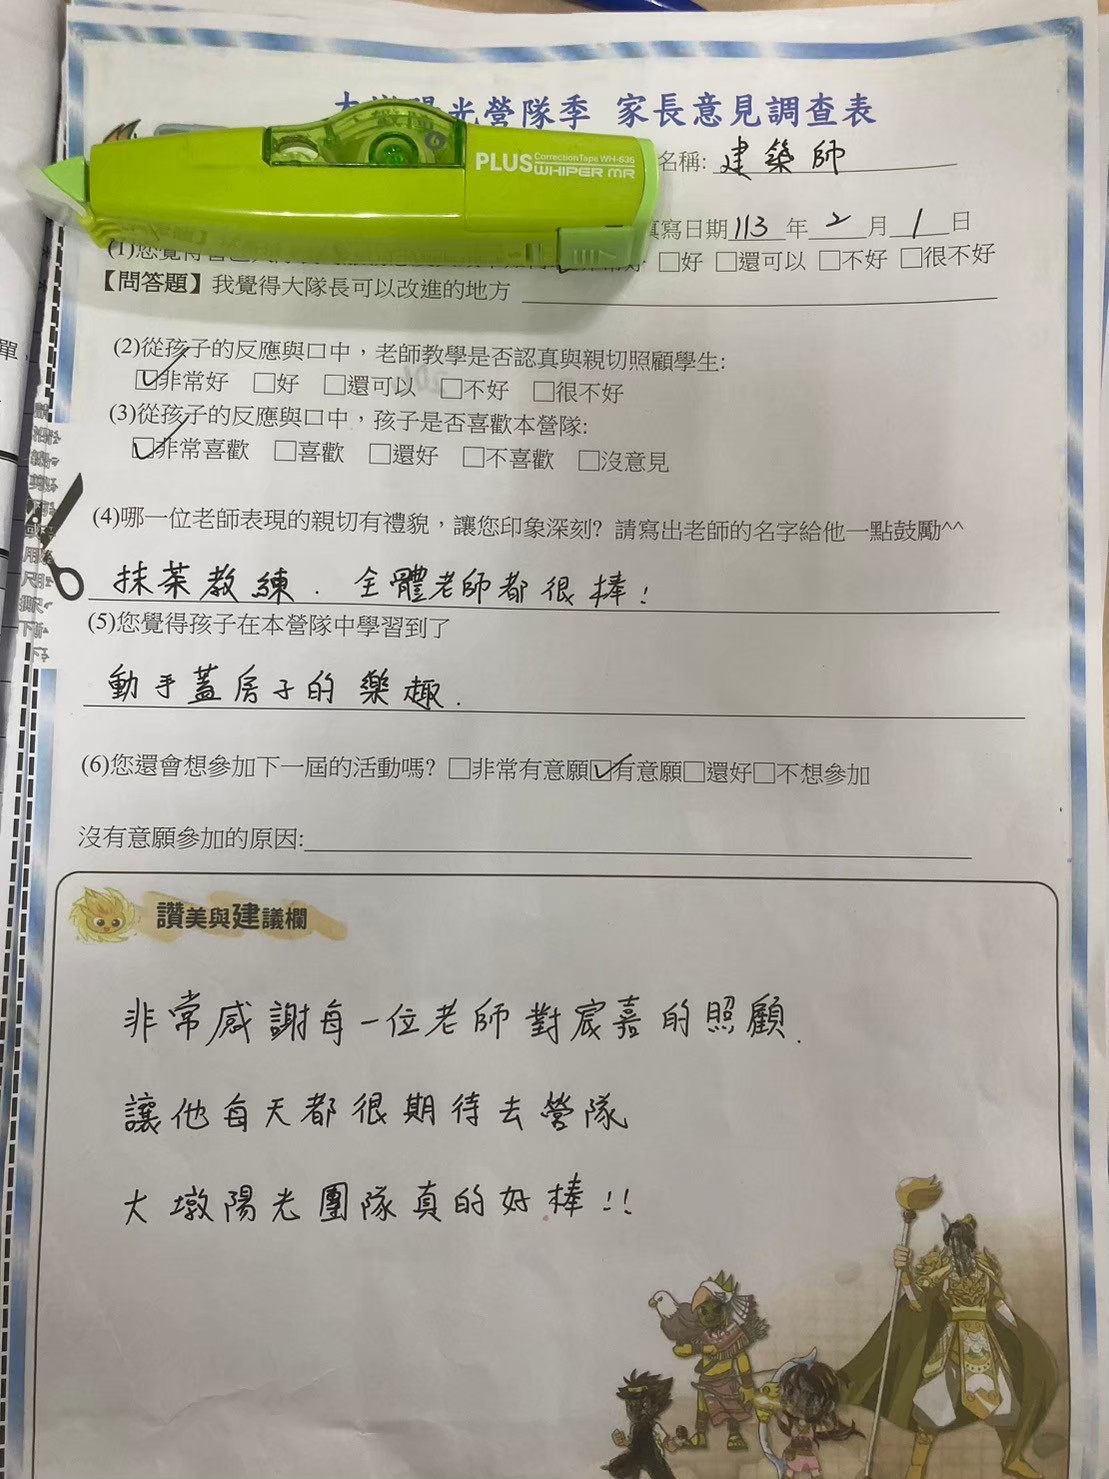 光營隊季 家長意見調查表
PLUS Correction Tape WH-635
WHIPER MR
6
名稱: 建築師
填寫日期113年2月1日
(1)您覺得
□好 □還可以 □不好 □很不好
【問答題】我覺得大隊長可以改進的地方
(2)從孩子的反應與口中，老師教學是否認真與親切照顧學生:
☑非常好 □好 □還可以 □不好 □很不好
(3)從孩子的反應與口中，孩子是否喜歡本營隊:
☑非常喜歡 □喜歡 □還好 □不喜歡 □沒意見
(4)哪一位老師表現的親切有禮貌，讓您印象深刻? 請寫出老師的名字給他一點鼓勵^^
抹茶教練. 全體老師都很棒!
(5)您覺得孩子在本營隊中學習到了
動手蓋房子的樂趣.
(6)您還會想參加下一屆的活動嗎? □非常有意願☑有意願□還好□不想參加
沒有意願參加的原因:
讚美與建議欄
非常感謝每一位老師對宸嘉的照顧.
讓他每天都很期待去營隊
大墩陽光團隊真的好棒!!
單